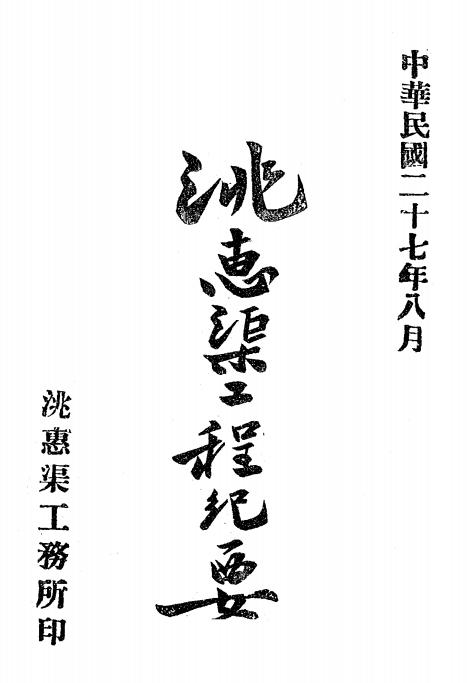 中華民國二十七年八月
洮惠渠工程紀要
洮惠渠工務所印